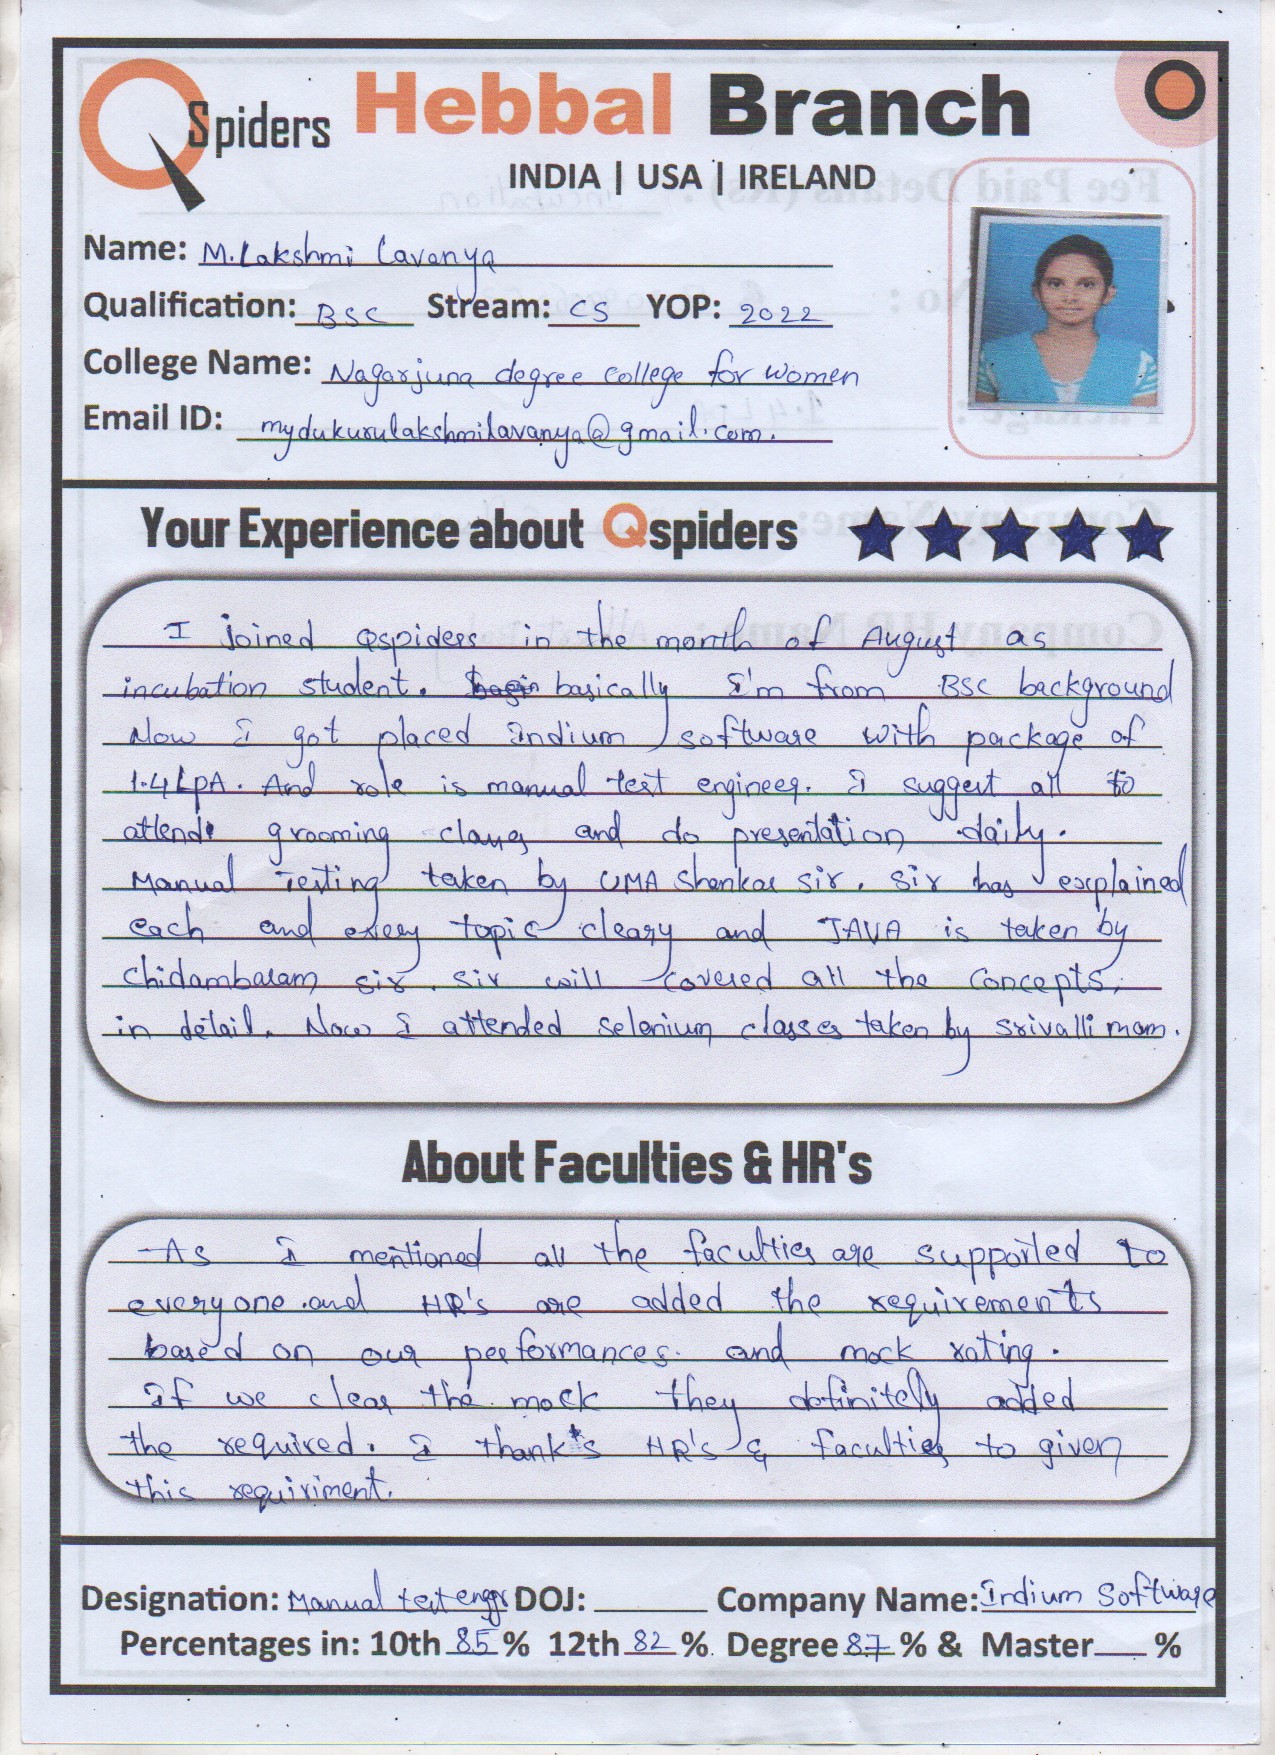 QSpiders Hebbal Branch
INDIA | USA | IRELAND
Name: M.Lakshmi Lavanya
Qualification: BSC Stream: CS YOP: 2022
College Name: Nagarjuna degree college for women
Email ID: mydukurulakshmilavanya@gmail.com.
Your Experience about Qspiders
I joined Qspiders in the month of August as
incubation student. basically I'm from BSC background
Now I got placed Indium software with package of
1.4LpA. And role is manual test engineer. I suggest all to
attend grooming classes and do presentation daily.
Manual Testing taken by UMA Shankar sir. Sir has explained
each and every topic cleary and JAVA is taken by
Chidambaram sir. sir will covered all the concepts.
in detail. Now I attended selenium classes taken by Srivalli mam.
About Faculties & HR's
As I mentioned all the faculties are supported to
everyone .and HR's are added the requirements
based on our performances. and mock rating.
If we clear the mock they definitely added
the required. I thank's HR's & faculties to given
this requiriment.
Designation: Manual test engr DOJ: Company Name: Indium Software
Percentages in: 10th 85 % 12th 82 % Degree 87 % & Master %